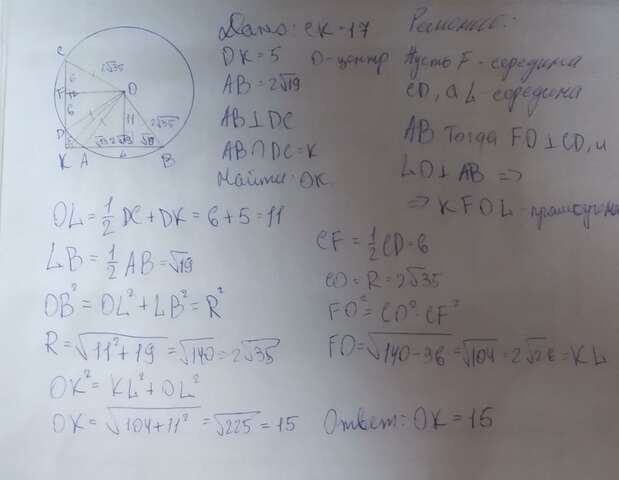 Дано: CK = 17
DK = 5 O - центр
AB = 2√19
AB ⊥ DC
AB ∩ DC = K
Найти: OK
Решение:
Пусть F - середина
CD, а L - середина
AB Тогда FO ⊥ CD, и
LO ⊥ AB ⇒
⇒ KFOL - прямоугольн
C
2√35
6
F
O
6
11
2√35
D
√19
K A
B
OL = 1/2 DC + DK = 6 + 5 = 11
LB = 1/2 AB = √19
OB² = OL² + LB² = R²
R = √(11² + 19) = √140 = 2√35
OK² = KL² + OL²
OK = √(104 + 11²) = √225 = 15
CF = 1/2 CD = 6
CO = R = 2√35
FO² = CO² - CF²
FO = √(140 - 36) = √104 = 2√26 = KL
Ответ: OK = 15